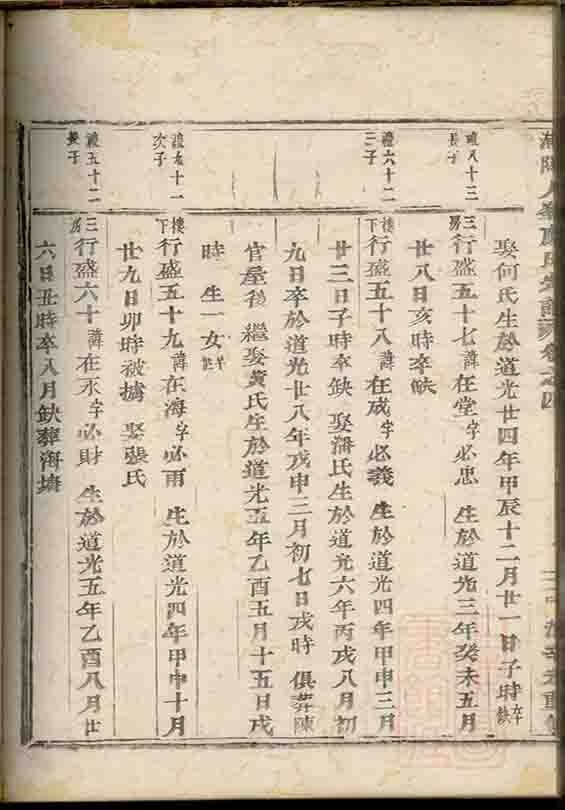 氏宗譜 卷之四
娶何氏生於道光廿四年甲辰十二月廿一日子時卒缺
禮八十三長子
三房行盛五十七諱在堂字必忠 生於道光三年癸未五月
廿八日亥時卒缺
禮六十二三子
樓下行盛五十八諱在成字必義 生於道光四年甲申三月
廿三日子時卒缺 娶潘氏生於道光六年丙戌八月初
九日卒於道光廿八年戊申三月初七日戌時 俱葬陳
官屋後 繼娶黃氏生於道光五年乙酉五月十五日戌
時 生一女
十二次子
樓下行盛五十九諱在海字必雨 生於道光四年甲申十月
廿九日卯時被擄 娶張氏
禮五十二長子
三房行盛六十諱在永字必財 生於道光五年乙酉八月廿
六日丑時卒八月缺葬海塘